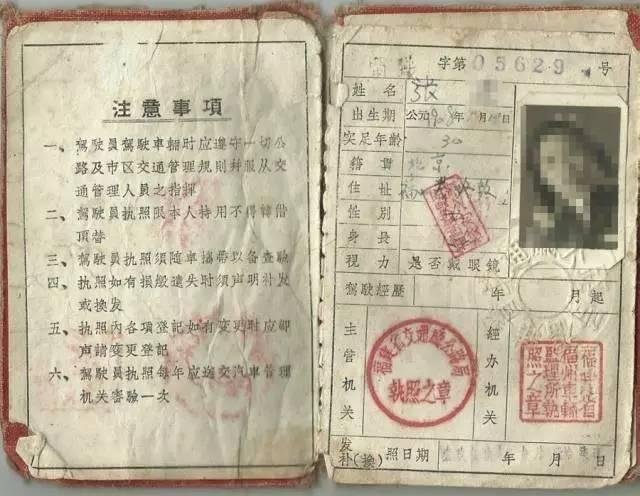 注意事項
一、駕駛員駕駛車輛时应遵守一切公
路及市区交通管理規則并服从交
通管理人員之指揮
二、駕駛員执照限本人特用不得轉借
頂替
三、駕駛員执照須随車攜带以备查驗
四、执照如有損毀遺失时須声明补发
或換发
五、执照內各項登記如有变更时应即
声請变更登記
六、駕駛員执照每年应送交汽車管理
机关審驗一次
字第05629号
姓名 張
出生期 公元 年 月 日
实足年齡 30
籍貫 北京
住址
性別
身長
視力 是否戴眼鏡
駕駛經歷 年 月起
主管机关
福建省交通廳公路局
执照之章
經办机关
福建省
福州車輛
監理所執
照之章
发
补(換) 照日期 年 月 日